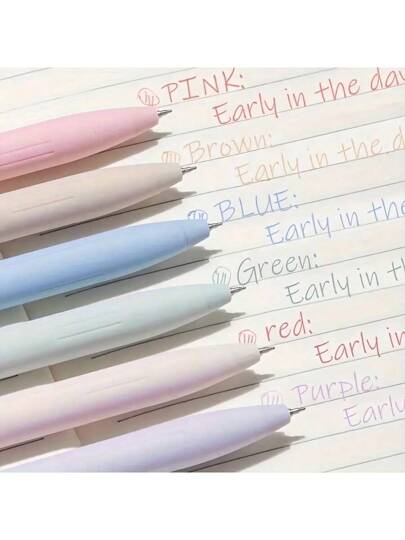 PINK:
Early in the day
Brown:
Early in the da
BLUE:
Early in the
Green:
Early in the
red:
Early in
Purple:
Early